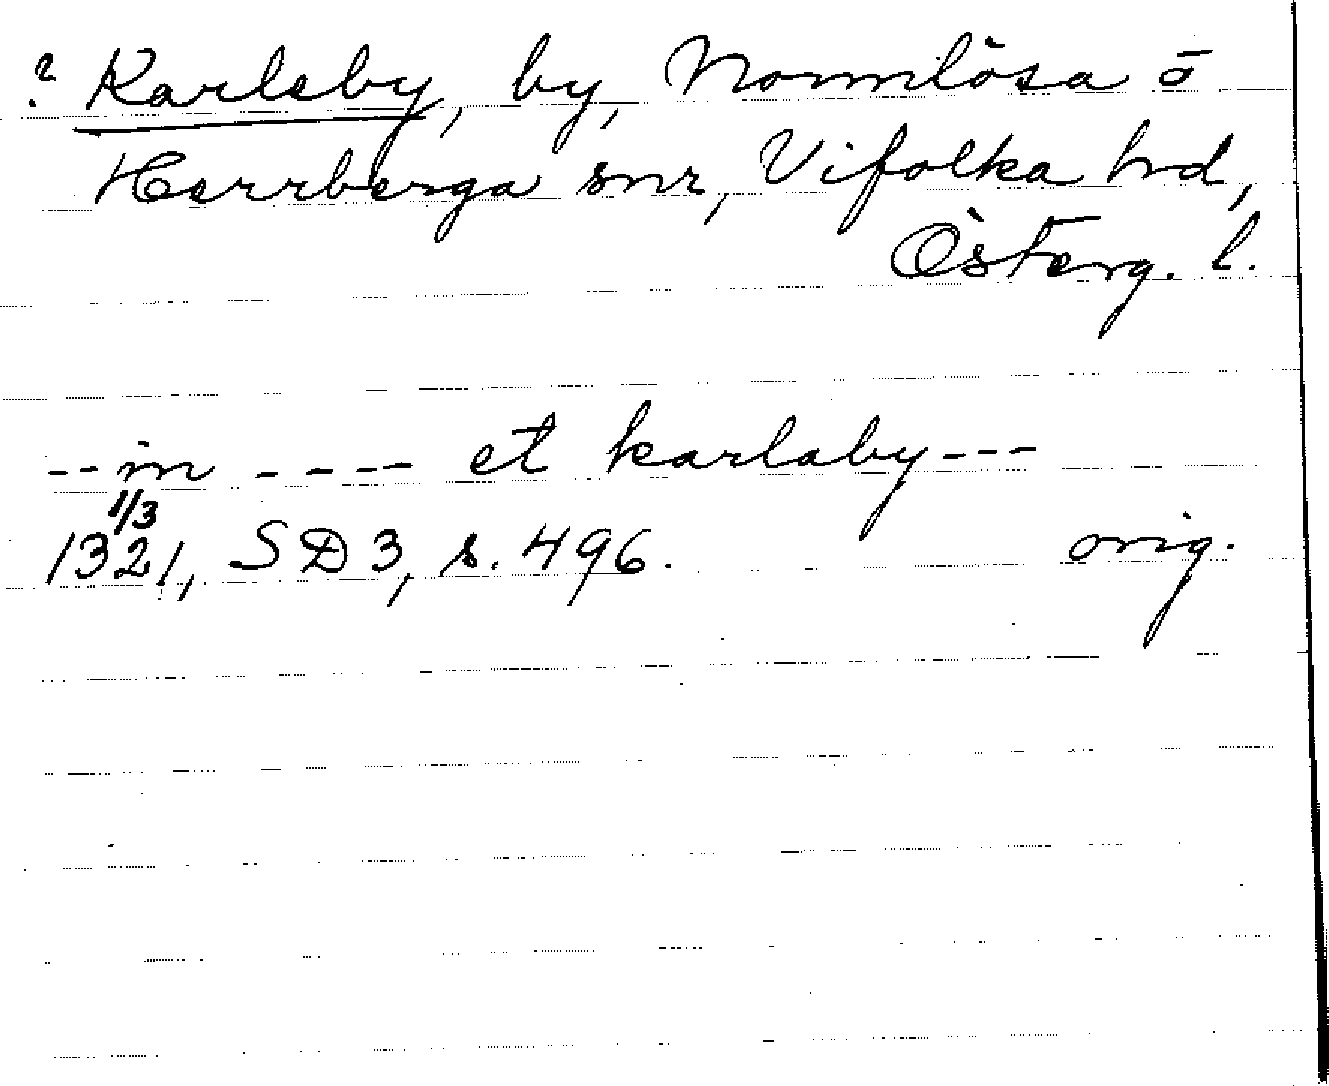 ? Karleby, by, Normlösa o
Herrberga snr, Vifolka hd,
Österg. l.
-- in ---- et karlaby ---
1/3
1321, SD 3, s. 496. orig.